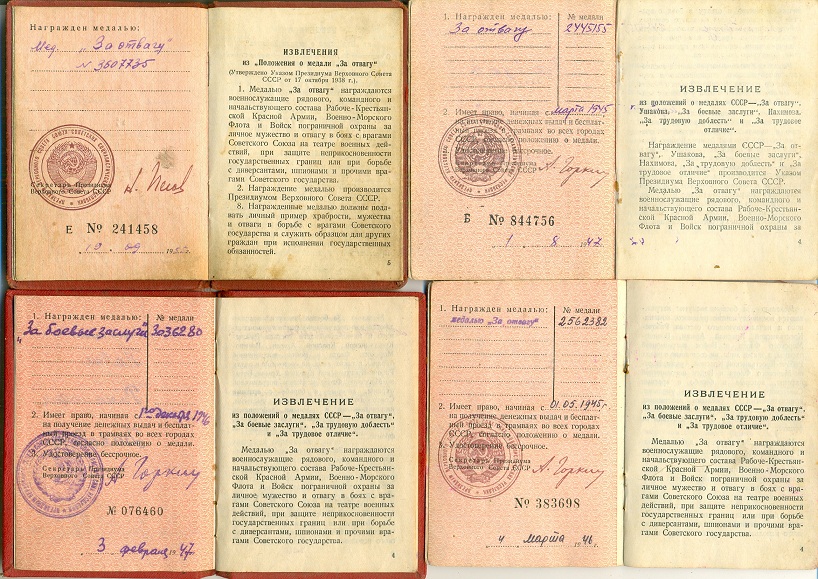 Награжден медалью:
Мед. „За отвагу"
N 3607735
Секретарь Президиума
Верховного Совета СССР
Е № 241458
19 09 19
ИЗВЛЕЧЕНИЯ
из „Положения о медали „За отвагу"
(Утверждено Указом Президиума Верховного Совета
СССР от 17 октября 1938 г.).
1. Медалью „За отвагу" награждаются
военнослужащие рядового, командного и
начальствующего состава Рабоче-Крестьян-
ской Красной Армии, Военно-Морского
Флота и Войск пограничной охраны за
личное мужество и отвагу в боях с врагами
Советского Союза на театре военных дей-
ствий, при защите неприкосновенности
государственных границ или при борьбе
с диверсантами, шпионами и прочими вра-
гами Советского государства.
2. Награждение медалью производится
Президиумом Верховного Совета СССР.
8. Награжденные медалью должны пода-
вать личный пример храбрости, мужества
и отваги в борьбе с врагами Советского
государства и служить образцом для других
граждан при исполнении государственных
обязанностей.
5
1. Награжден медалью: № медали
За отвагу 2445155
2. Имеет право, начиная с марта 1945
на получение денежных выдач и бесплат-
ный проезд в трамваях во всех городах
СССР, согласно положению о медали.
3. Удостоверение бессрочное.
Секретарь Президиума
Верховного Совета СССР
А. Горкин
Б № 844756
1 8 1947
ИЗВЛЕЧЕНИЕ
из положений о медалях СССР—„За отвагу",
Ушакова, „За боевые заслуги", Нахимова,
„За трудовую доблесть" и „За трудовое
отличие".
Награждение медалями СССР — „За от-
вагу", Ушакова, „За боевые заслуги",
Нахимова, „За трудовую доблесть" и „За
трудовое отличие" производится Указом
Президиума Верховного Совета СССР.
Медалью „За отвагу" награждаются
военнослужащие рядового, командного и
начальствующего состава Рабоче-Крестьян-
ской Красной Армии, Военно-Морского
Флота и Войск пограничной охраны за
4
1. Награжден медалью: № медали
„За боевые заслуги" 3036280
2. Имеет право, начиная с 1го декабря 1946
на получение денежных выдач и бесплат-
ный проезд в трамваях во всех городах
СССР, согласно положению о медали.
3. Удостоверение бессрочное.
Секретарь Президиума
Верховного Совета СССР
Горкин
№ 076460
3 февраля 1947
ИЗВЛЕЧЕНИЕ
из положений о медалях СССР—„За отвагу",
„За боевые заслуги", „За трудовую доблесть"
и „За трудовое отличие".
Медалью „За отвагу" награждаются
военнослужащие рядового, командного и
начальствующего состава Рабоче-Крестьян-
ской Красной Армии, Военно-Морского
Флота и Войск пограничной охраны за
личное мужество и отвагу в боях с вра-
гами Советского Союза на театре военных
действий, при защите неприкосновенности
государственных границ или при борьбе
с диверсантами, шпионами и прочими вра-
гами Советского государства.
4
1. Награжден медалью: № медали
медалью „За отвагу" 2562382
2. Имеет право, начиная с 01.05.1945г
на получение денежных выдач и бесплат-
ный проезд в трамваях во всех городах
СССР, согласно положению о медали.
3. Удостоверение бессрочное.
Секретарь Президиума
Верховного Совета СССР
А. Горкин
№ 383698
4 Марта 1946 г.
ИЗВЛЕЧЕНИЕ
из положений о медалях СССР—„За отвагу",
„За боевые заслуги", „За трудовую доблесть"
и „За трудовое отличие".
Медалью „За отвагу" награждаются
военнослужащие рядового, командного и
начальствующего состава Рабоче-Крестьян-
ской Красной Армии, Военно-Морского
Флота и Войск пограничной охраны за
личное мужество и отвагу в боях с вра-
гами Советского Союза на театре военных
действий, при защите неприкосновенности
государственных границ или при борьбе
с диверсантами, шпионами и прочими вра-
гами Советского государства.
4